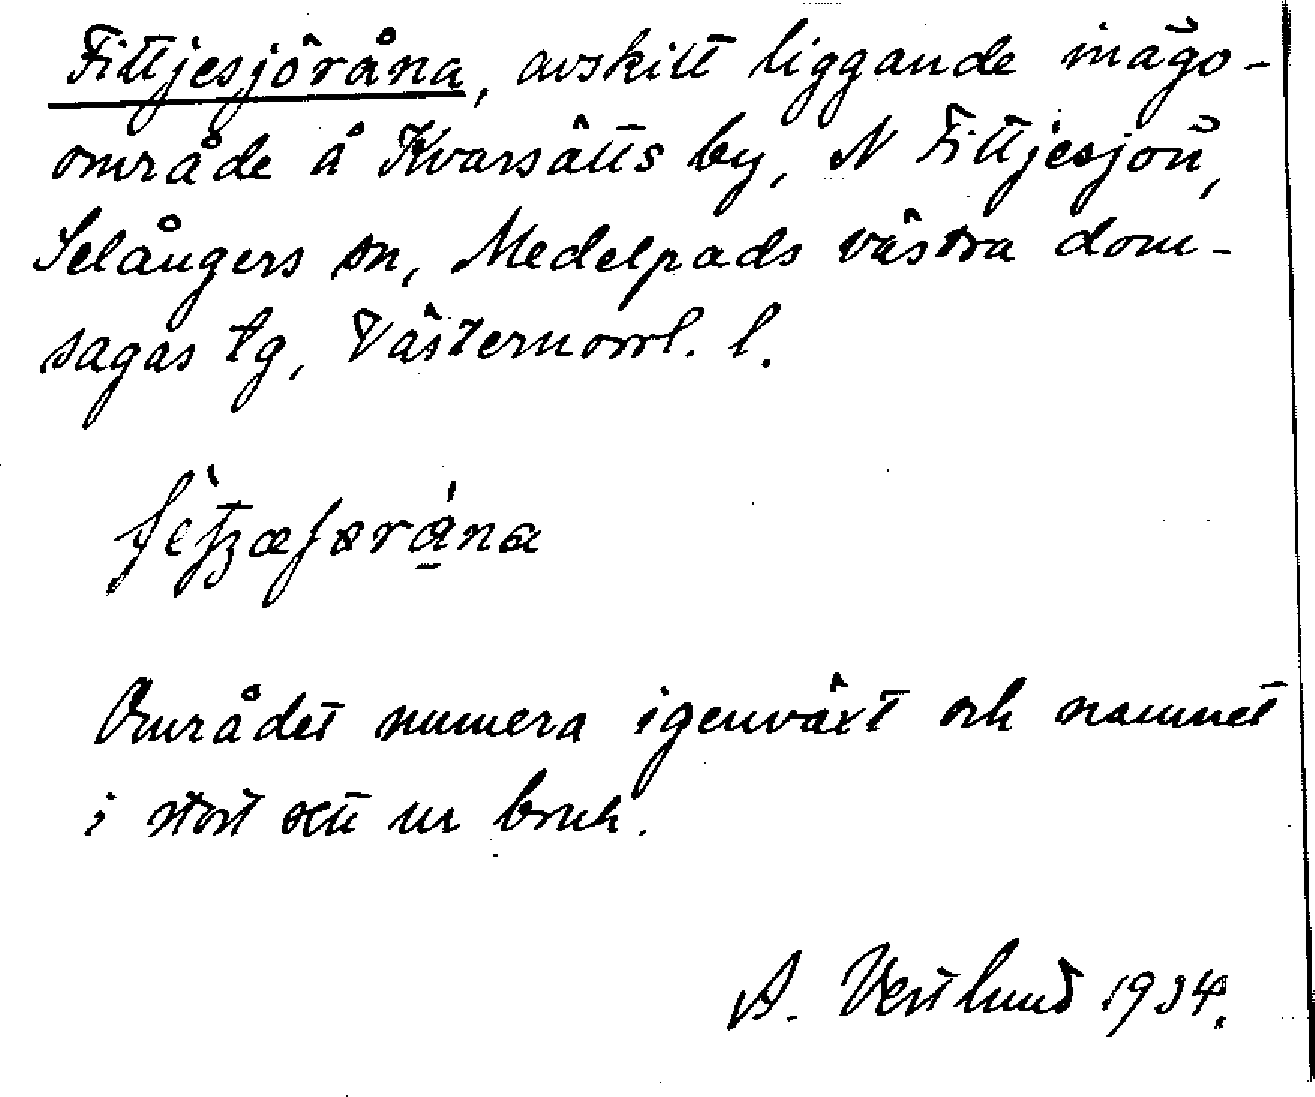 Fittjesjöråna, avskilt liggande inägo-
område å Kvarsätts by, N Fittjesjön,
Selångers sn, Medelpads västra dom-
sagas tg, Västernorrl. l.
Området numera igenväxt och namnet
i stort sett ur bruk.
A. Vestlund 1934.